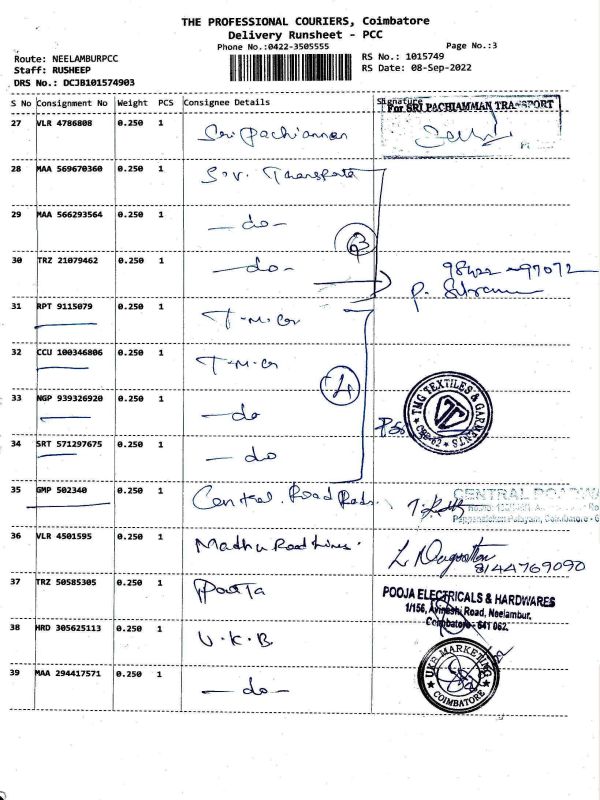 THE PROFESSIONAL COURIERS, Coimbatore
Delivery Runsheet - PCC
Phone No.:0422-3505555
Page No.:3
Route: NEELAMBURPCC
RS No.: 1015749
Staff: RUSHEEP
RS Date: 08-Sep-2022
DRS No.: DCJB101574903
S No Consignment No Weight PCS Consignee Details Signature
For SRI PACHIAMMAN TRANSPORT
27 VLR 4786808 0.250 1 Sri Pachiamman
28 MAA 569670360 0.250 1 S.V. Transports
29 MAA 566293564 0.250 1 - do -
3
30 TRZ 21079462 0.250 1 - do - 98422-97072
31 RPT 9115079 0.250 1 T.M.G
32 CCU 100346806 0.250 1 T.M.G
4
33 NGP 939326920 0.250 1 - do
TMG TEXTILES & GARMENTS
CBE-62
34 SRT 571297675 0.250 1 - do
35 GMP 502340 0.250 1 Central Road
CENTRAL ROADWA
Coimbatore - 6
36 VLR 4501595 0.250 1 Madhu Road Lines.
8144769090
37 TRZ 50585305 0.250 1
POOJA ELECTRICALS & HARDWARES
1/156, Avinashi Road, Neelambur,
Coimbatore - 641 062.
38 HRD 305625113 0.250 1 U.K.B.
UKB MARKETING
COIMBATORE
39 MAA 294417571 0.250 1 - do -